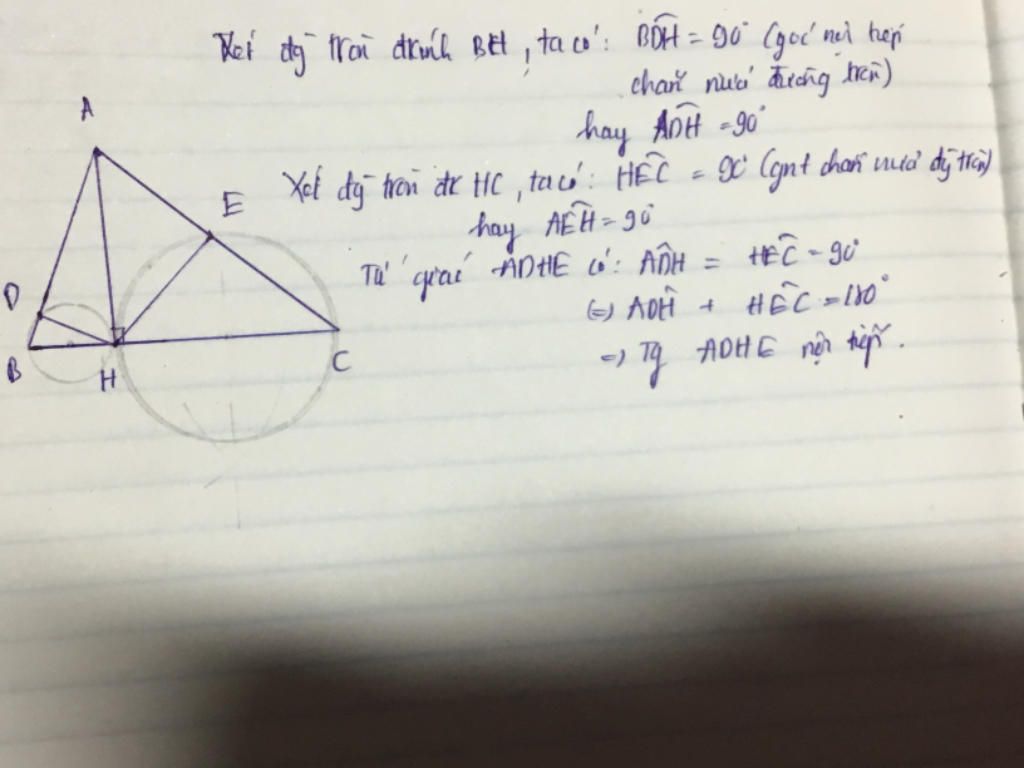 Xét đg tròn đkính BH, ta có: BDH = 90° (góc nội tiếp
chắn nửa đường tròn)
hay ADH = 90°
Xét đg tròn đk HC, ta có: HEC = 90° (gnt chắn nửa đg tròn)
hay AEH = 90°
Tứ giác ADHE có: ADH = HEC = 90°
(=) ADH + HEC = 180°
=) Tg ADHE nội tiếp.
A
E
D
B
H
C